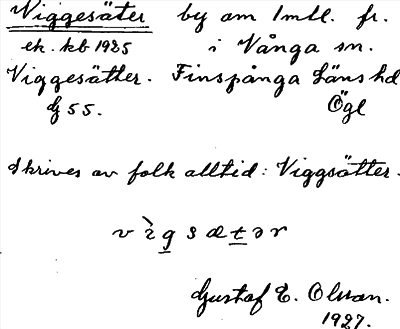 Viggesäter by om 1 mtl. fr.
ek. kb 1925 i Vånga sn.
Viggesätter. Finspånga läns hd
G 55. Ögl
Skrives av folk alltid: Viggsätter.
v ì g s æ t ə r
Gustaf E. Olsson.
1927.